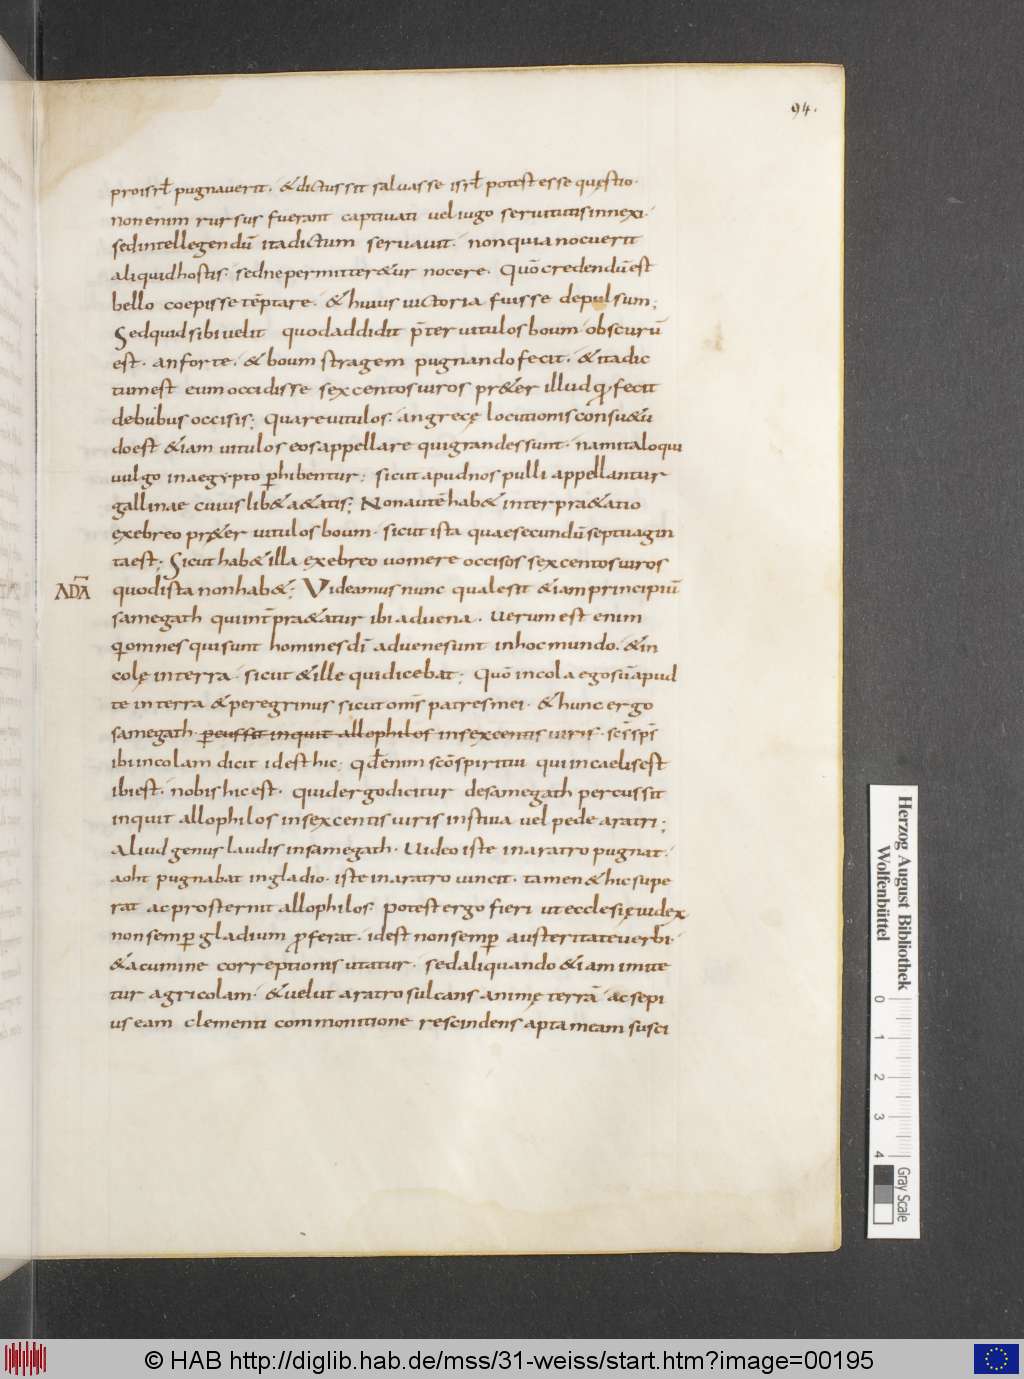 94.
pro isrl̄ pugnauerit. & dictus sit saluasse isrl̄ potest esse quęstio.
non enim rursus fuerant captiuati uel iugo seruitutis innexi.
sed intellegendū ita dictum seruauit. non quia nocuerit
aliquid hostis. sed ne permitter&ur nocere. Quō credendū est
bello coepisse tēptare. & huius uictoria fuisse depulsum;
Sed quid sibi uelit quod addidit p̄ter uitulos boum obscurū
est. an forte. & boum stragem pugnando fecit. & ita dic
tum est eum occidisse sexcentos uiros pr&er illud q̇ fecit
de bubus occisis; Quare uitulos. an grecę locutionis cōsu&u
do est &iam uitulos eos appellare qui grandes sunt. nam ita loqui
uulgo in aegypto ꝑhibentur; sicut apud nos pulli appellantur
gallinae cuius lib& a&atis; Non autē hab& interpra&atio
ex ebreo pr&er uitulos boum. sicut ista quae secundū septuagin
ta est; Sicut hab& illa ex ebreo uomere occisos sexcentos uiros
ADĀ
quod ista non hab&; Videamus nunc quale sit &iam principiū
samegath qui int̄pra&atur ibi aduena. Uerum est enim
q̇ omnes qui sunt homines dī aduene sunt in hoc mundo. & in
colę in terra. sicut & ille qui dicebat; Quō incola ego sū apud
te in terra & peregrinus sicut om̄s patres mei. & hunc ergo
samegath. ꝑcussit inquit allophilos in sexcentis uiris. sc̄s sp̄s
ibi incolam dicit id est hic; Qd̄ enim scō spiritui qui in caelis est
ibi est. nobis hic est. quid ergo dicitur de samegath percussit
inquit allophilos in sexcentis uiris in stiua uel pede aratri;
Aliud genus laudis in samegath. Uideo iste in aratro pugnat.
aoht pugnabat in gladio. iste in aratro uincit. tamen & hic supe
rat ac prosternit allophilos. potest ergo fieri ut ecclesię iudex
non semꝑ gladium ꝓferat. id est non semꝑ austeritate uerbi.
& acumine correptionis utatur. sed aliquando &iam imite
tur agricolam. & uelut aratro sulcans animę terrā ac sepi
us eam clementi commonitione rescindens aptam eam susci
Herzog August Bibliothek
Wolfenbüttel
0 1 2 3 4
Gray Scale
© HAB http://diglib.hab.de/mss/31-weiss/start.htm?image=00195